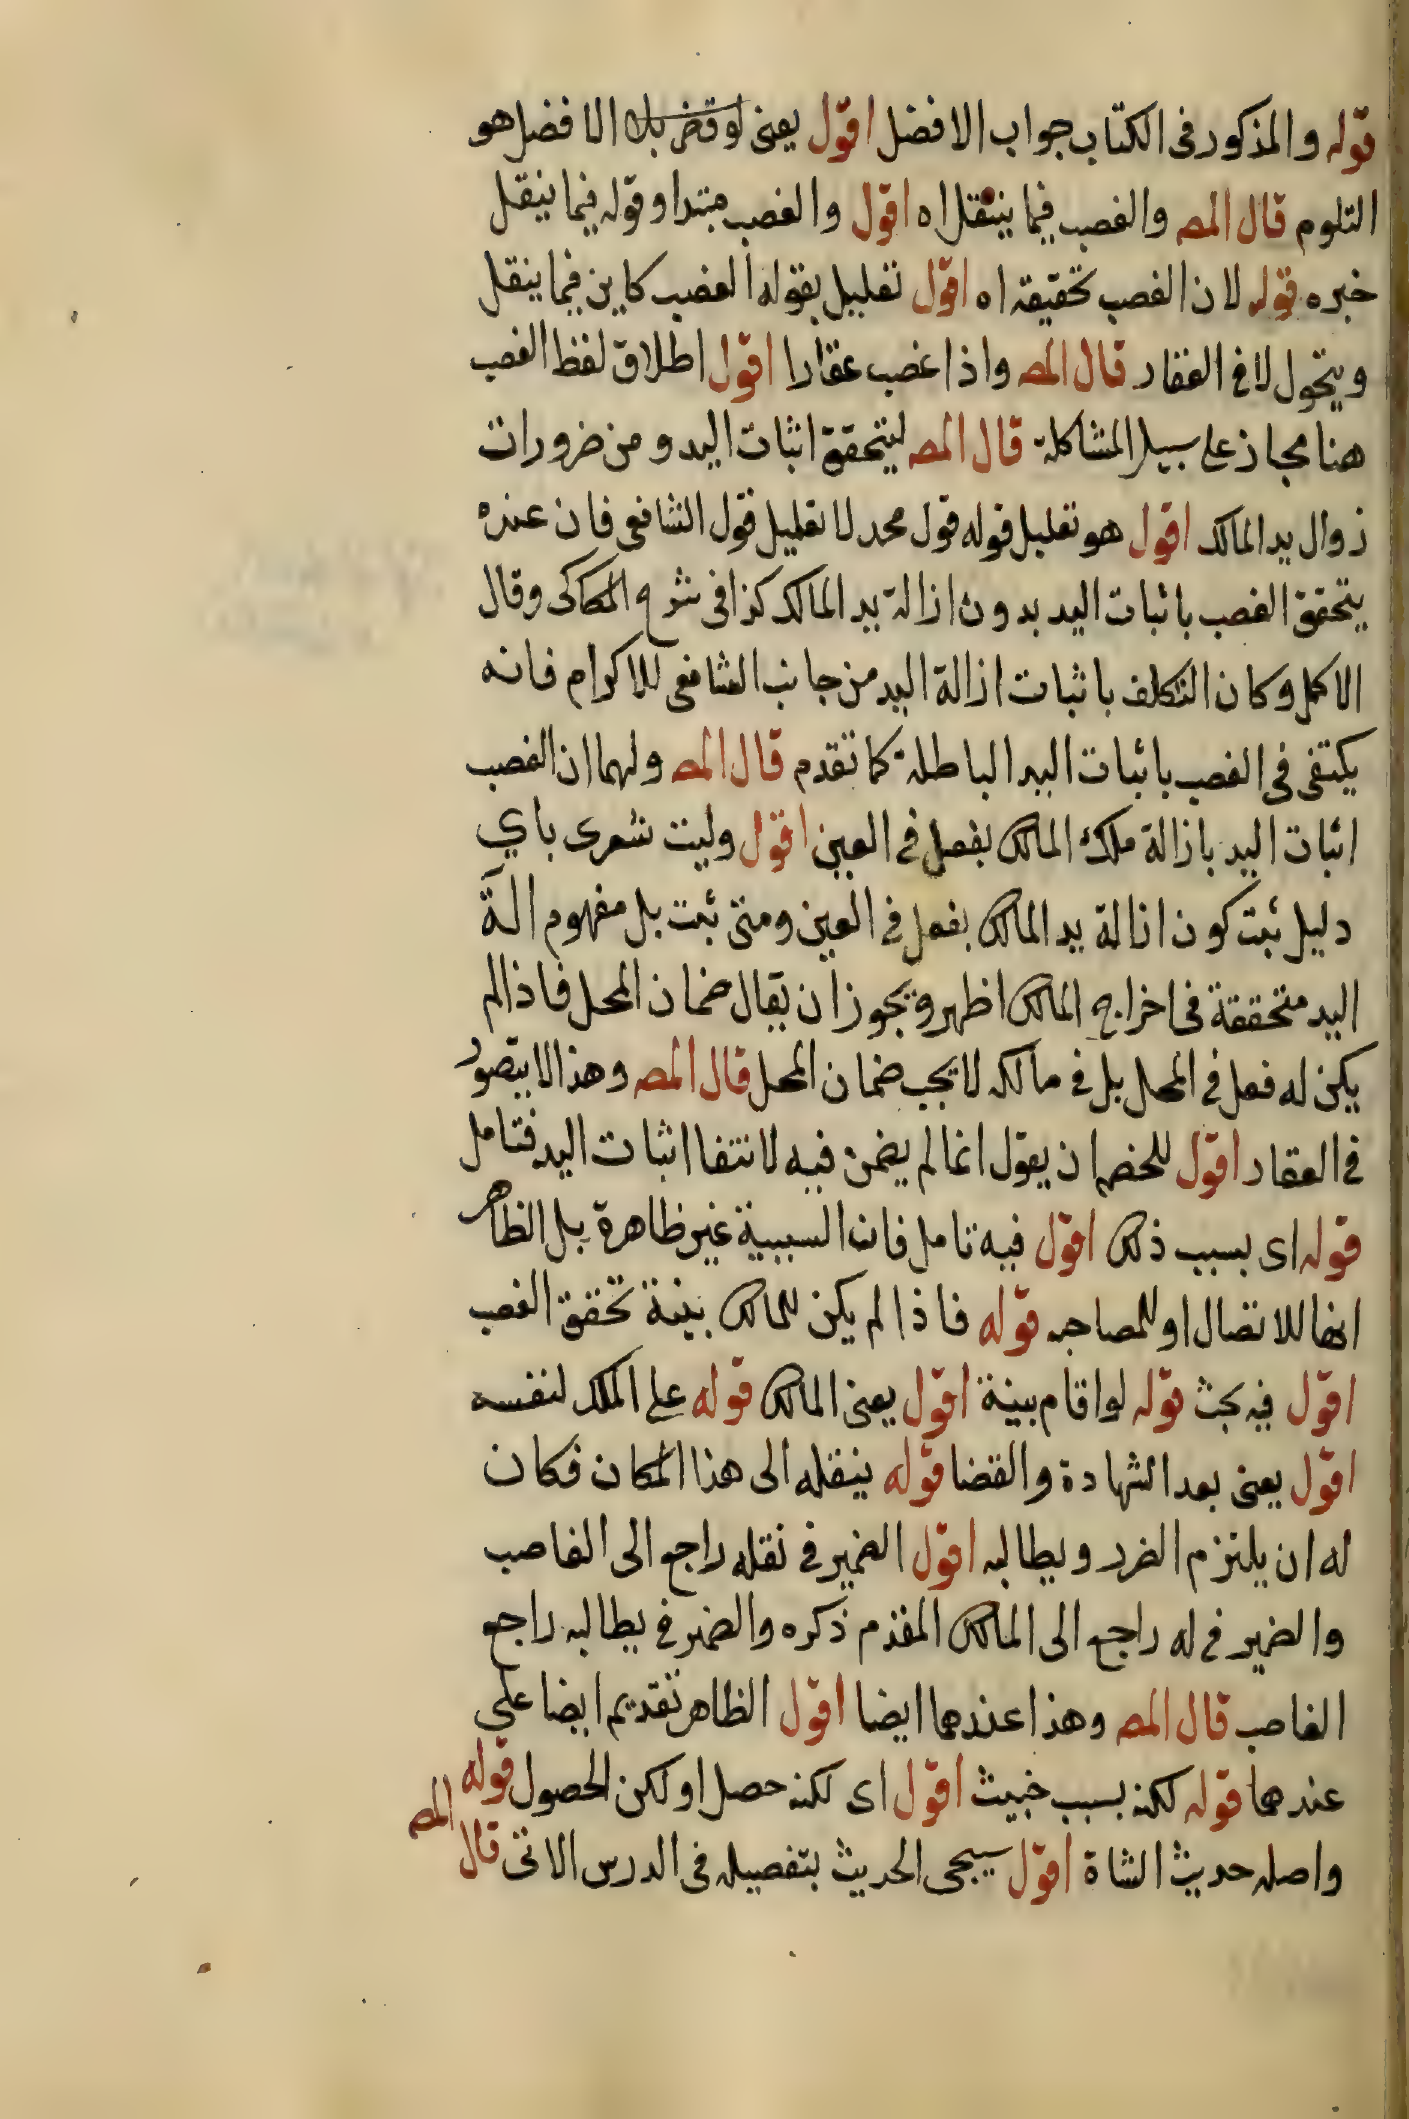 قوله والمذكور فى الكتاب جواب الافضل اقول يعنى لو قضى بل الافضل هو
التلوم قال المص والغصب فيما ينتقل اه اقول والغصب مبتدا وقوله فيما ينقل
خبره قوله لان الغصب تحقيقه اه اقول تعليل بقوله الغصب كاين فيما ينقل
ويتحول لا فى العقار قال المص واذا غصب عقارا اقول اطلاق لفظ الغصب
هنا مجاز على سبيل المشاكلة قال المص ليتحقق اثبات اليد ومن ضرورات
زوال يد المالك اقول هو تعليل قوله قول محمد لا تعليل قول الشافعى فان عنده
يتحقق الغصب باثبات اليد بدون ازالة يد المالك كذا فى شرح الكاكى وقال
الاكمل وكان التكلف باثبات ازالة اليد من جانب الشافعى للاكرام فانه
يكتفى فى الغصب باثبات اليد الباطلة كما تقدم قال المص ولهما ان الغصب
اثبات اليد بازالة ملك المالك بفعل فى العين اقول وليت شعرى باي
دليل ثبت كون ازالة يد المالك بفعل فى العين ومتى ثبت بل مفهوم الة
اليد متحققة فى اخراج المالك اظهر ويجوز ان يقال ضمان المحل فاذا لم
يكن له فعل فى المحل بل فى مالكه لا يجب ضمان المحل قال المص وهذا لا يتصور
فى العقار اقول للخصم ان يقول انما لم يضمن فيه لانتفا اثبات اليد فتامل
قوله اى بسبب ذلك اقول فيه تامل فان السببية غير ظاهرة بل الظاهر
انها للاتصال او للمصاحبه قوله فاذا لم يكن للمالك بينة تحقق الغصب
اقول فيه بحث قوله لو اقام بينة اقول يعنى المالك قوله على الملك لنفسه
اقول يعنى بعد الشهادة والقضا قوله ينقله الى هذا المكان فكان
له ان يلتزم الضرر ويطالبه اقول الضمير فى نقله راجع الى الغاصب
والضمير فى له راجع الى المالك المقدم ذكره والضمير فى يطالبه راجع
الغاصب قال المص وهذا عندهما ايضا اقول الظاهر تقديم ايضا على
عندهما قوله لكنه بسبب خبيث اقول اى لكنه حصل او لكن الحصول قوله
واصله حديث الشاة اقول سيجى الحديث بتفصيله فى الدرس الاتى قال المص